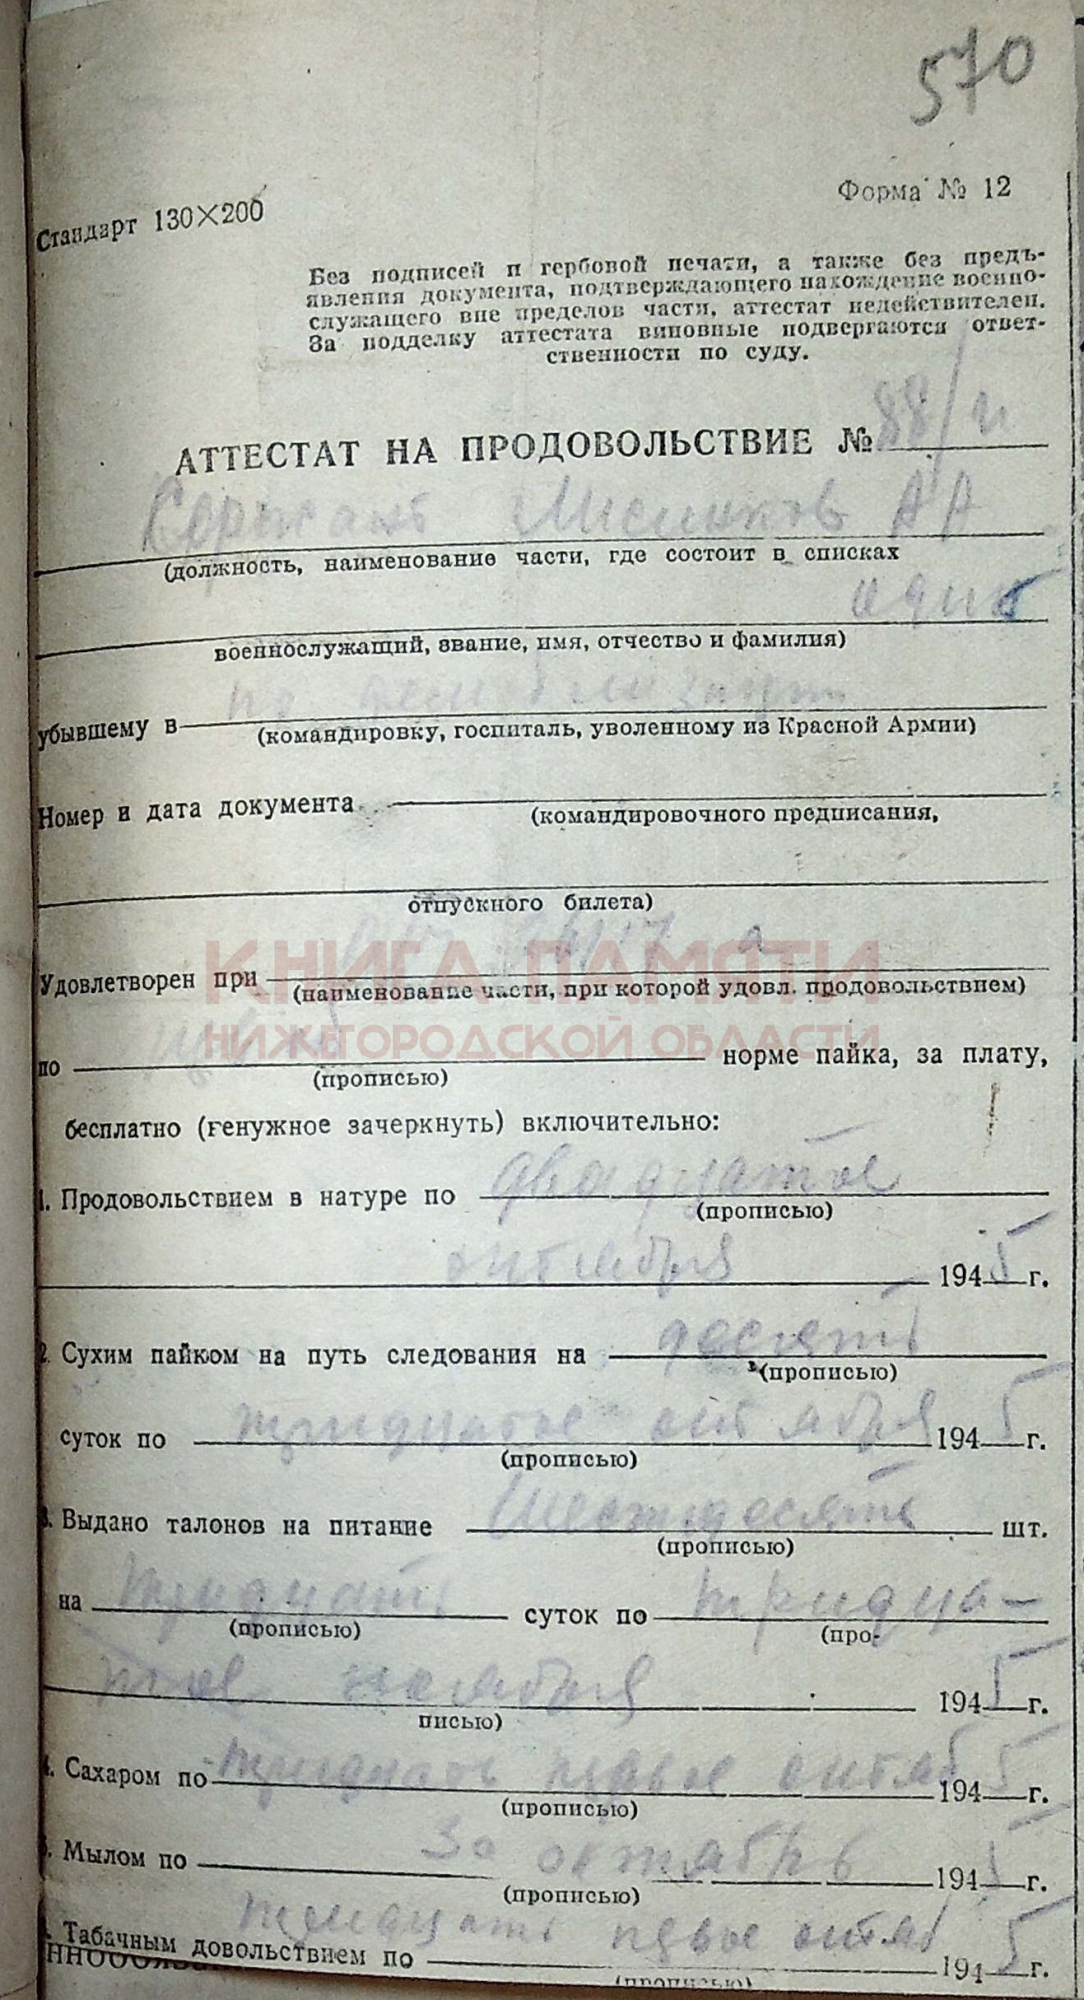 570
Форма № 12
Стандарт 130×200
Без подписей и гербовой печати, а также без предъ-
явления документа, подтверждающего нахождение военно-
служащего вне пределов части, аттестат недействителен.
За подделку аттестата виновные подвергаются ответ-
ственности по суду.
АТТЕСТАТ НА ПРОДОВОЛЬСТВИЕ № 88/и
Сержант А А
(должность, наименование части, где состоит в списках
один
военнослужащий, звание, имя, отчество и фамилия)
убывшему в по демобилизации
(командировку, госпиталь, уволенному из Красной Армии)
Номер и дата документа
(командировочного предписания,
отпускного билета)
Удовлетворен при
(наименование части, при которой удовл. продовольствием)
КНИГА ПАМЯТИ
НИЖЕГОРОДСКОЙ ОБЛАСТИ
по норме пайка, за плату,
(прописью)
бесплатно (генужное зачеркнуть) включительно:
1. Продовольствием в натуре по двадцатое
(прописью)
октября 1945 г.
2. Сухим пайком на путь следования на десять
(прописью)
суток по тридцатое октября 1945 г.
(прописью)
3. Выдано талонов на питание шестьдесят шт.
(прописью)
на тридцать суток по тридца-
(прописью) (про-
тое ноября 1945 г.
писью)
4. Сахаром по тридцать первое октяб 1945 г.
(прописью)
5. Мылом по 30 октябрь 1945 г.
(прописью)
Табачным довольствием по тридцать первое октяб 1945 г.
(прописью)